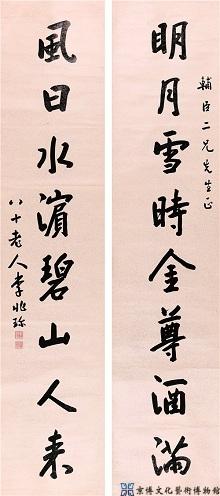 明月雪時金尊酒滿
輔臣二兄先生正
風日水濱碧山人来
八十老人李兆珍
京博文化藝術博物館